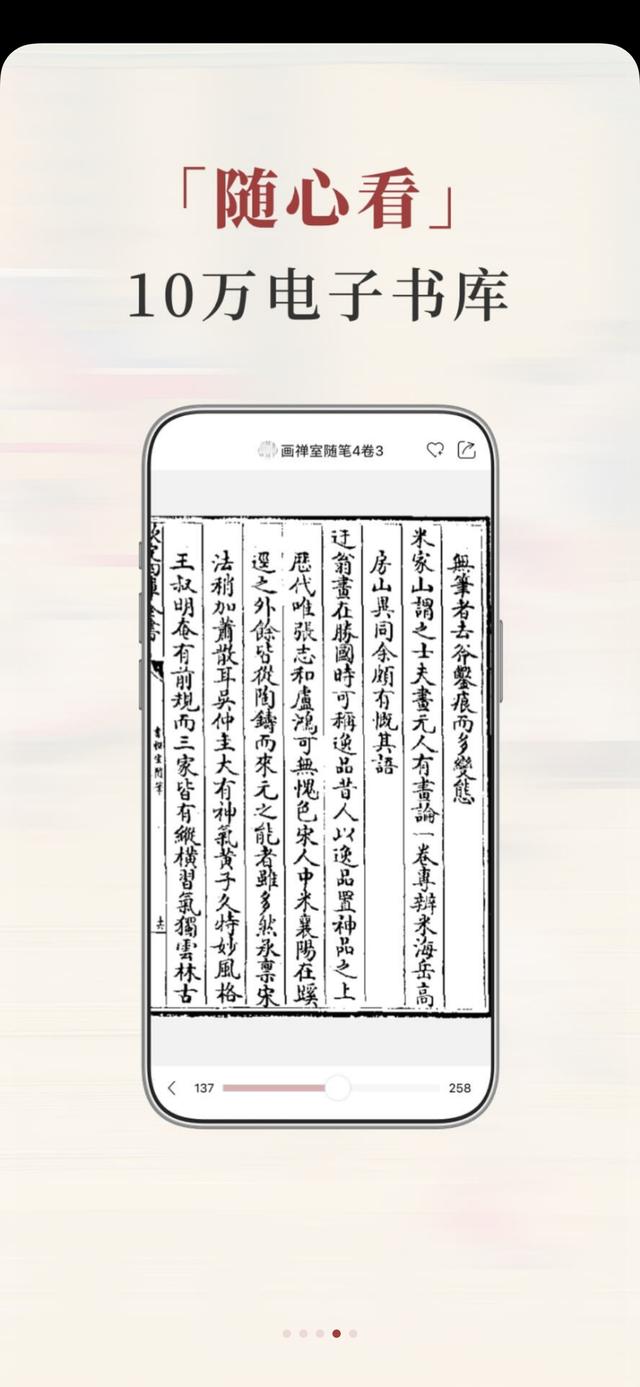 「随心看」
10万电子书库
画禅室随笔4卷3
無筆者去斧鑿痕而多變態
米家山謂之士夫畫元人有畫論一卷專辨米海岳高
房山異同余頗有慨其語
迂翁畫在勝國時可稱逸品昔人以逸品置神品之上
歷代唯張志和盧鴻可無愧色宋人中米襄陽在蹊
逕之外餘皆從陶鑄而來元之能者雖多然承稟宋
法稍加蕭散耳吳仲圭大有神氣黃子久特妙風格
王叔明奄有前規而三家皆有縱橫習氣獨雲林古
137
258